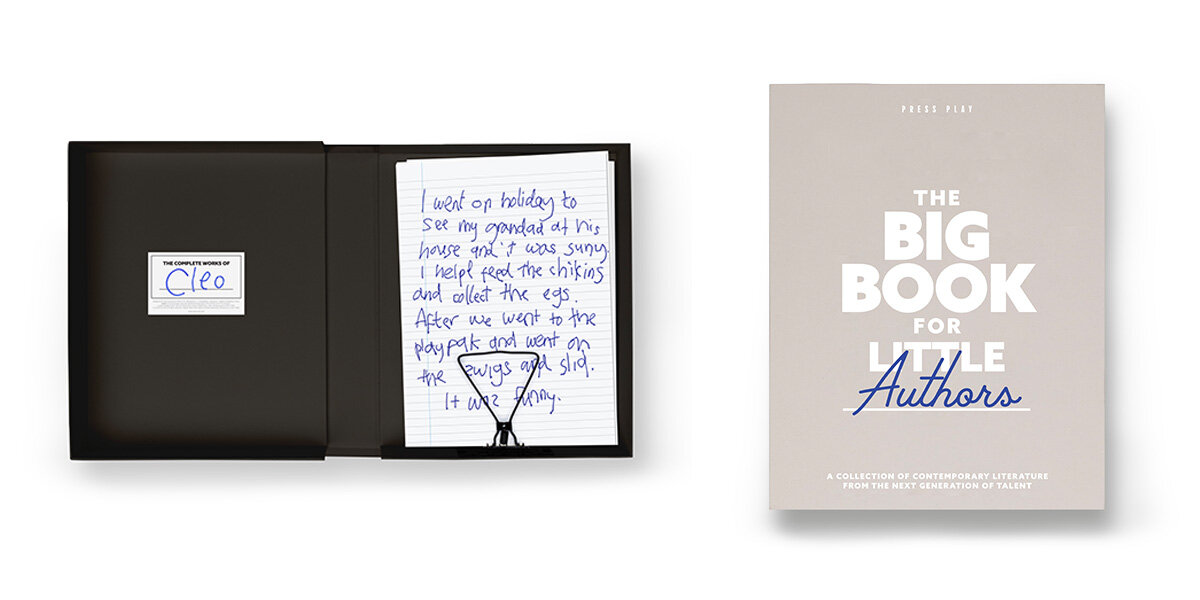 THE COMPLETE WORKS OF
Cleo
I went on holiday to
see my grandad at his
house and it was suny.
I helpt feed the chiking
and collect the egs.
After we went to the
playpak and went on
the zwigs and slid.
It was funny.
PRESS PLAY
THE
BIG
BOOK
FOR
LITTLE
Authors
A COLLECTION OF CONTEMPORARY LITERATURE
FROM THE NEXT GENERATION OF TALENT